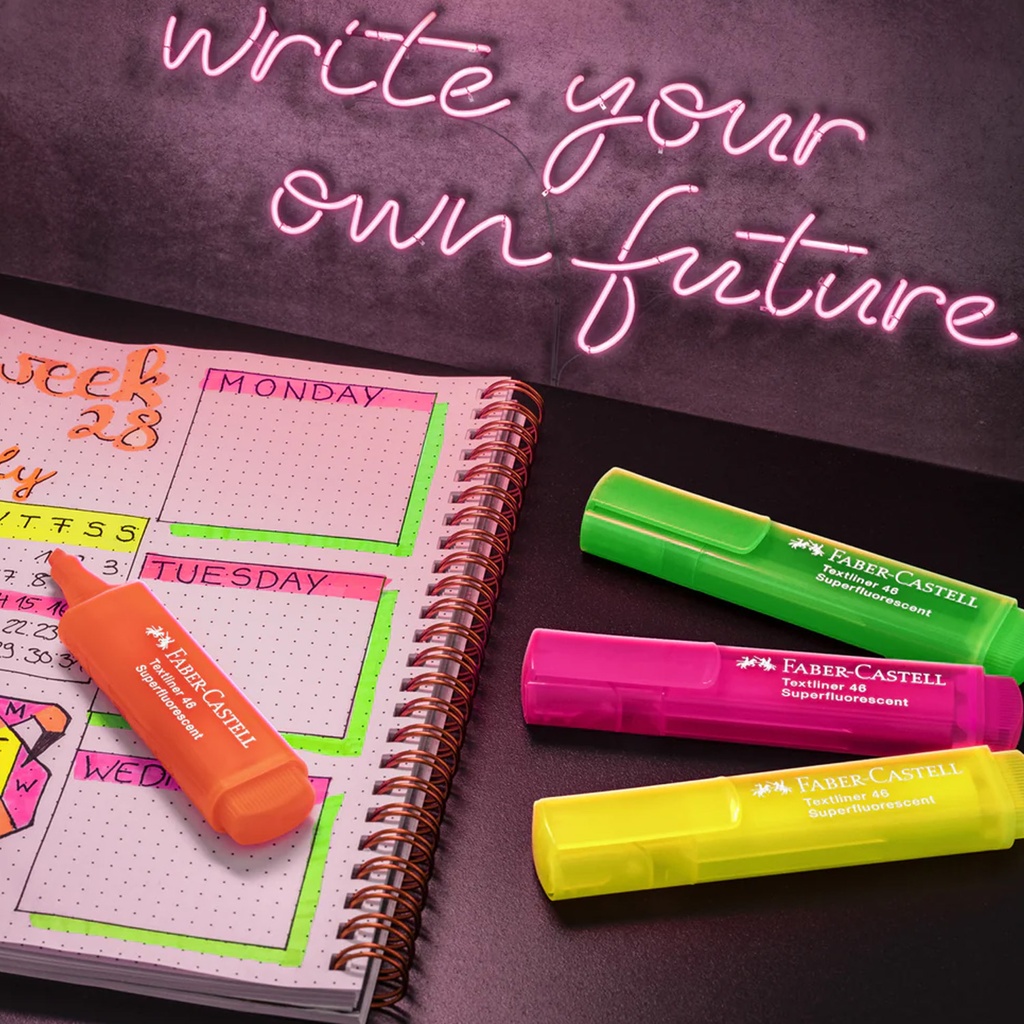 write your
own future
week
28
MONDAY
T F S S
3
7 8
TUESDAY
14 15 16
22 23
29 30 31
M
W
FABER-CASTELL
Textliner 46
Superfluorescent
FABER-CASTELL
Textliner 46
Superfluorescent
FABER-CASTELL
Textliner 46
Superfluorescent
FABER-CASTELL
Textliner 46
Superfluorescent